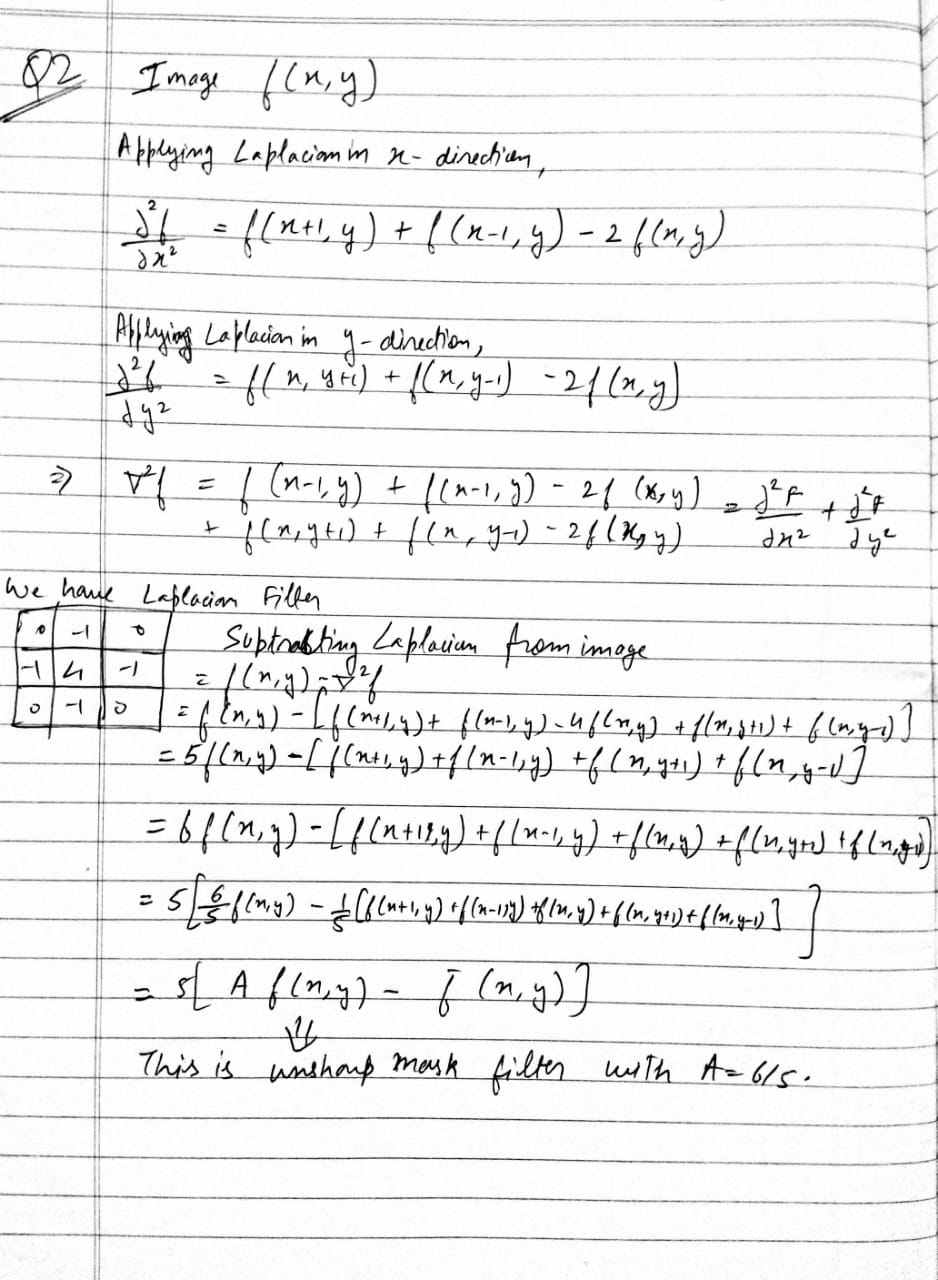 Q2 Image f(x,y)
Applying Laplacian in x- direction,
∂²f/∂x² = f(x+1,y) + f(x-1,y) - 2f(x,y)
Applying Laplacian in y-direction,
∂²f/∂y² = f(x, y+1) + f(x,y-1) - 2f(x,y)
⇒ ∇²f = f(x-1,y) + f(x-1,y) - 2f(x,y) = ∂²f/∂x² + ∂²f/∂y²
+ f(x,y+1) + f(x, y-1) - 2f(x,y)
We have Laplacian Filter
0 -1 0
-1 4 -1
0 -1 0
Subtrabting Laplacian from image
= f(x,y) - ∇²f
= f(x,y) - [f(x+1,y) + f(x-1,y) - 4f(x,y) + f(x,y+1) + f(x,y-1)]
= 5f(x,y) - [f(x+1,y) + f(x-1,y) + f(x,y+1) + f(x,y-1)]
= 6f(x,y) - [f(x+1,y) + f(x-1,y) + f(x,y) + f(x,y+1) + f(x,y-1)]
= 5[6/5 f(x,y) - 1/5 [f(x+1,y) + f(x-1,y) + f(x,y) + f(x,y+1) + f(x,y-1)]]
= 5[A f(x,y) - f̄(x,y)]
⇓
This is unsharp mask filter with A = 6/5.